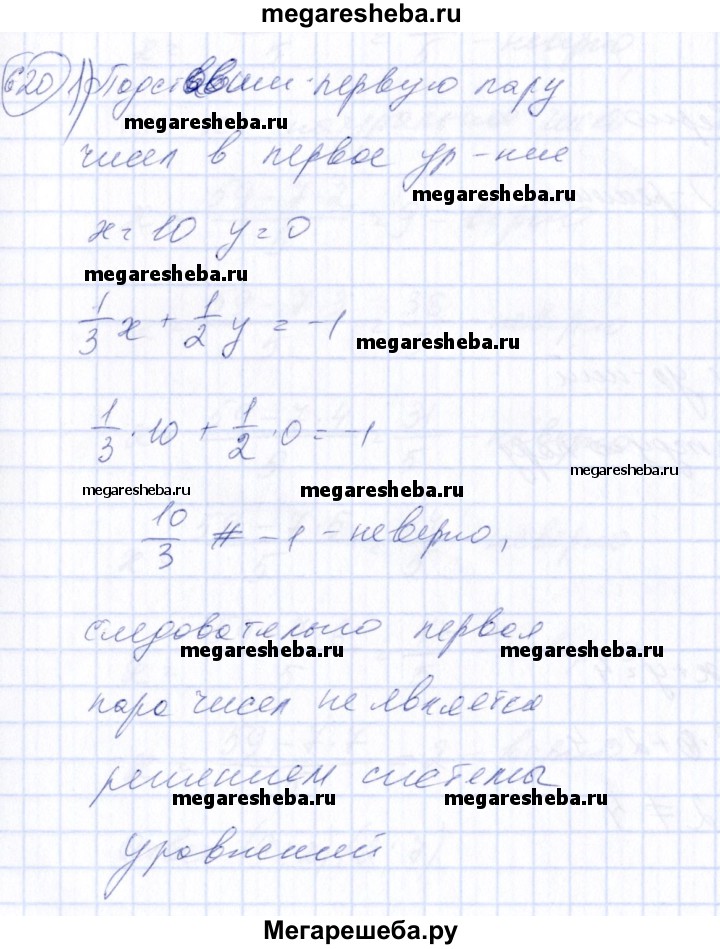 megaresheba.ru
620 1) Подставим первую пару
megaresheba.ru
чисел в первое ур-ние
megaresheba.ru
x = 10 y = 0
megaresheba.ru
1/3 x + 1/2 y = -1
megaresheba.ru
1/3 · 10 + 1/2 · 0 = -1
megaresheba.ru
megaresheba.ru
megaresheba.ru
10/3 ≠ -1 - неверно,
следовательно первая
megaresheba.ru
megaresheba.ru
пара чисел не является
решением системы
megaresheba.ru
megaresheba.ru
уравнений
Мегарешеба.ру